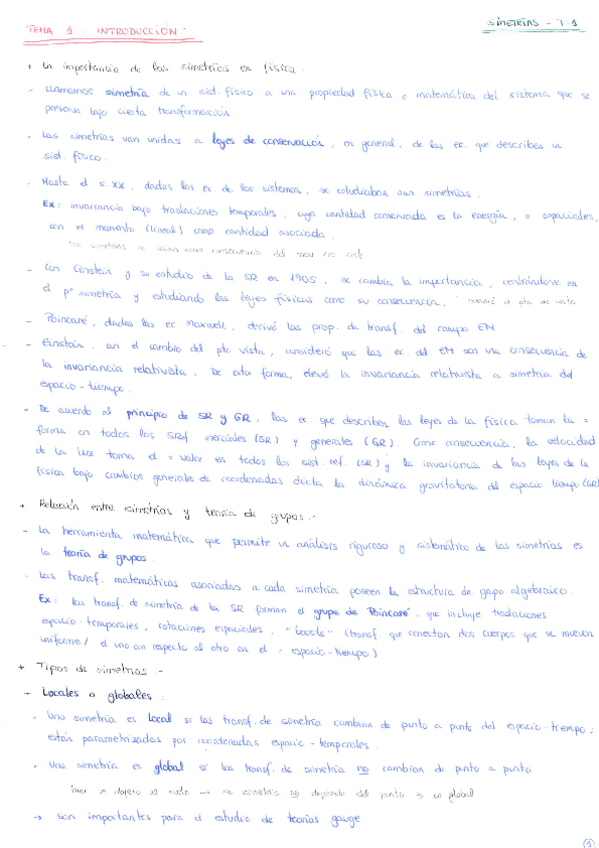 TEMA 1 : INTRODUCCIÓN
SIMETRÍAS - T.1
+ La importancia de las simetrías en física.
- Llamamos simetría de un sist. físico a una propiedad física o matemática del sistema que se
preserva bajo cierta transformación
- Las simetrías van unidas a leyes de conservación, en general, de las ec. que describen un
sist. físico.
- Hasta el s. XX, dadas las ec. de los sistemas, se estudiaban sus simetrías.
Ex: invariancia bajo traslaciones temporales, cuya cantidad conservada es la energía, o espaciales,
con el momento (lineal) como cantidad asociada.
las simetrías se veían como consecuencia del
- Con Einstein y su estudio de la SR en 1905, se cambia la importancia, centrándose en
el pº simetría y estudiando las leyes físicas como su consecuencia. cambió el pto de vista
- Poincaré, dadas las ec. Maxwell, derivó las prop. de transf. del campo EM
- Einstein, con el cambio del pto vista, consideró que las ec. del EM son una consecuencia de
la invariancia relativista. De esta forma, elevó la invariancia relativista a simetría del
espacio-tiempo.
- De acuerdo al principio de SR y GR, las ec. que describen las leyes de la física toman la =
forma en todos los SRef inerciales (SR) y generales (GR). Como consecuencia, la velocidad
de la luz toma el = valor en todos los sist. ref. (SR) y la invariancia de las leyes de la
física bajo cambios generales de coordenadas dicta la dinámica gravitatoria del espacio tiempo (GR)
+ Relación entre simetrías y teoría de grupos.-
- La herramienta matemática que permite un análisis riguroso y sistemático de las simetrías es
la teoría de grupos.
- Las transf. matemáticas asociadas a cada simetría poseen la estructura de grupo algebraico.
Ex: las transf. de simetría de la SR forman el grupo de Poincaré, que incluye traslaciones
espacio-temporales, rotaciones espaciales, "boosts" (transf. que conectan dos cuerpos que se mueven
uniforme/ el uno con respecto al otro en el espacio-tiempo)
+ Tipos de simetrías.-
- Locales o globales:
. Una simetría es local si las transf. de simetría cambian de punto a punto del espacio-tiempo:
están parametrizadas por coordenadas espacio-temporales.
. Una simetría es global si las transf. de simetría no cambian de punto a punto
un objeto al → la simetría no depende del punto y es global
→ son importantes para el estudio de teorías gauge
1